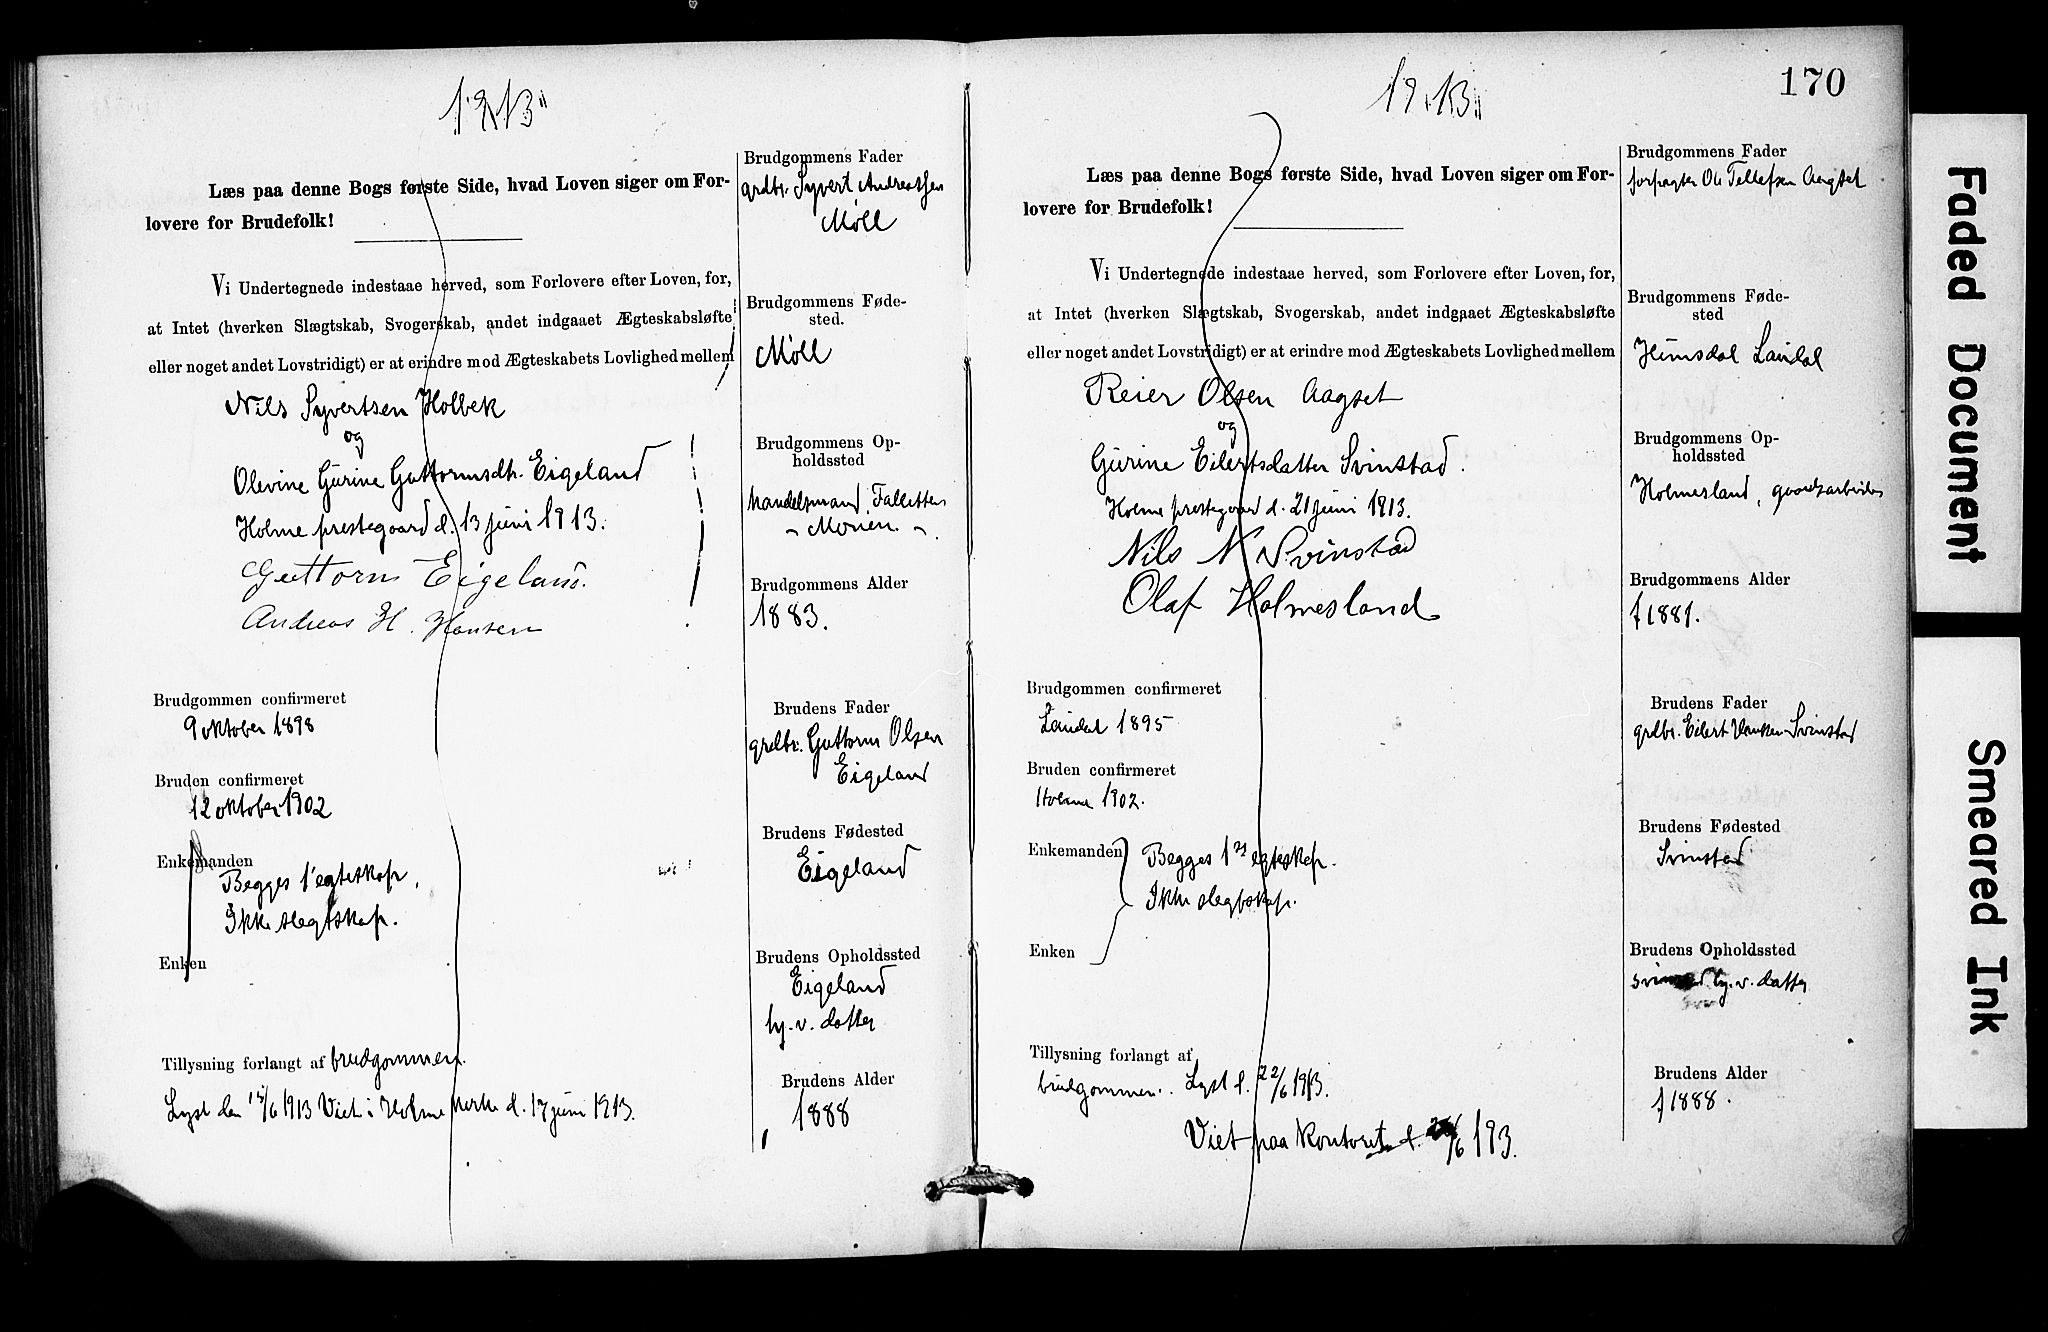 1913
Læs paa denne Bogs første Side, hvad Loven siger om For-
lovere for Brudefolk!
Vi Undertegnede indestaae herved, som Forlovere efter Loven, for,
at Intet (hverken Slægtskab, Svogerskab, andet indgaaet Ægteskabsløfte
eller noget andet Lovstridigt) er at erindre mod Ægteskabets Lovlighed mellem
Nils Syvertsen Holbek
og
Olevine Gurine Guttormsdtr. Eigeland
Holme prestegaard d. 13 juni 1913.
Guttorm Eigeland.
Andreas H. Hansen
Brudgommen confirmeret
9 oktober 1898
Bruden confirmeret
12 oktober 1902
Enkemanden
Begges 1' egteskap,
Ikke slegtskap.
Enken
Tillysning forlangt af brudgommen.
Lyst den 15/6 1913 Viet i Holme kirke d. 17 juni 1913.
Brudgommens Fader
grdbr. Syvert Andreassen
Møll
Brudgommens Føde-
sted.
Møll
Brudgommens Op-
holdssted
handelsmand,
Monen
Brudgommens Alder
1883.
Brudens Fader
grdbr. Guttorm Olsen
Eigeland
Brudens Fødested
Eigeland
Brudens Opholdssted
Eigeland
hj. v. datter
Brudens Alder
1888
1913
170
Læs paa denne Bogs første Side, hvad Loven siger om For-
lovere for Brudefolk!
Vi Undertegnede indestaae herved, som Forlovere efter Loven, for,
at Intet (hverken Slægtskab, Svogerskab, andet indgaaet Ægteskabsløfte
eller noget andet Lovstridigt) er at erindre mod Ægteskabets Lovlighed mellem
Reier Olsen Aagset
og
Gurine Eilertsdatter Svinstad.
Holme prestegaard d. 21 juni 1913.
Nils N Svinstad
Olaf Holmesland
Brudgommen confirmeret
Laudal 1895
Bruden confirmeret
Holme 1902.
Enkemanden
Begges 1st egteskap.
Ikke slegtskap.
Enken
Tillysning forlangt af
brudgommen. Lyst d. 22/6 1913.
Viet paa Kontoret d. /6 193.
Brudgommens Fader
forpagter Ole Tellefsen Aagset
Brudgommens Føde-
sted
Heimsdal Laudal
Brudgommens Op-
holdssted
Holmesland, gaardsarbeider
Brudgommens Alder
f 1881.
Brudens Fader
grdbr. Eilert Svinstad
Brudens Fødested
Svinstad
Brudens Opholdssted
hj. v. datter
Brudens Alder
f 1888.
Faded Document
Smeared Ink